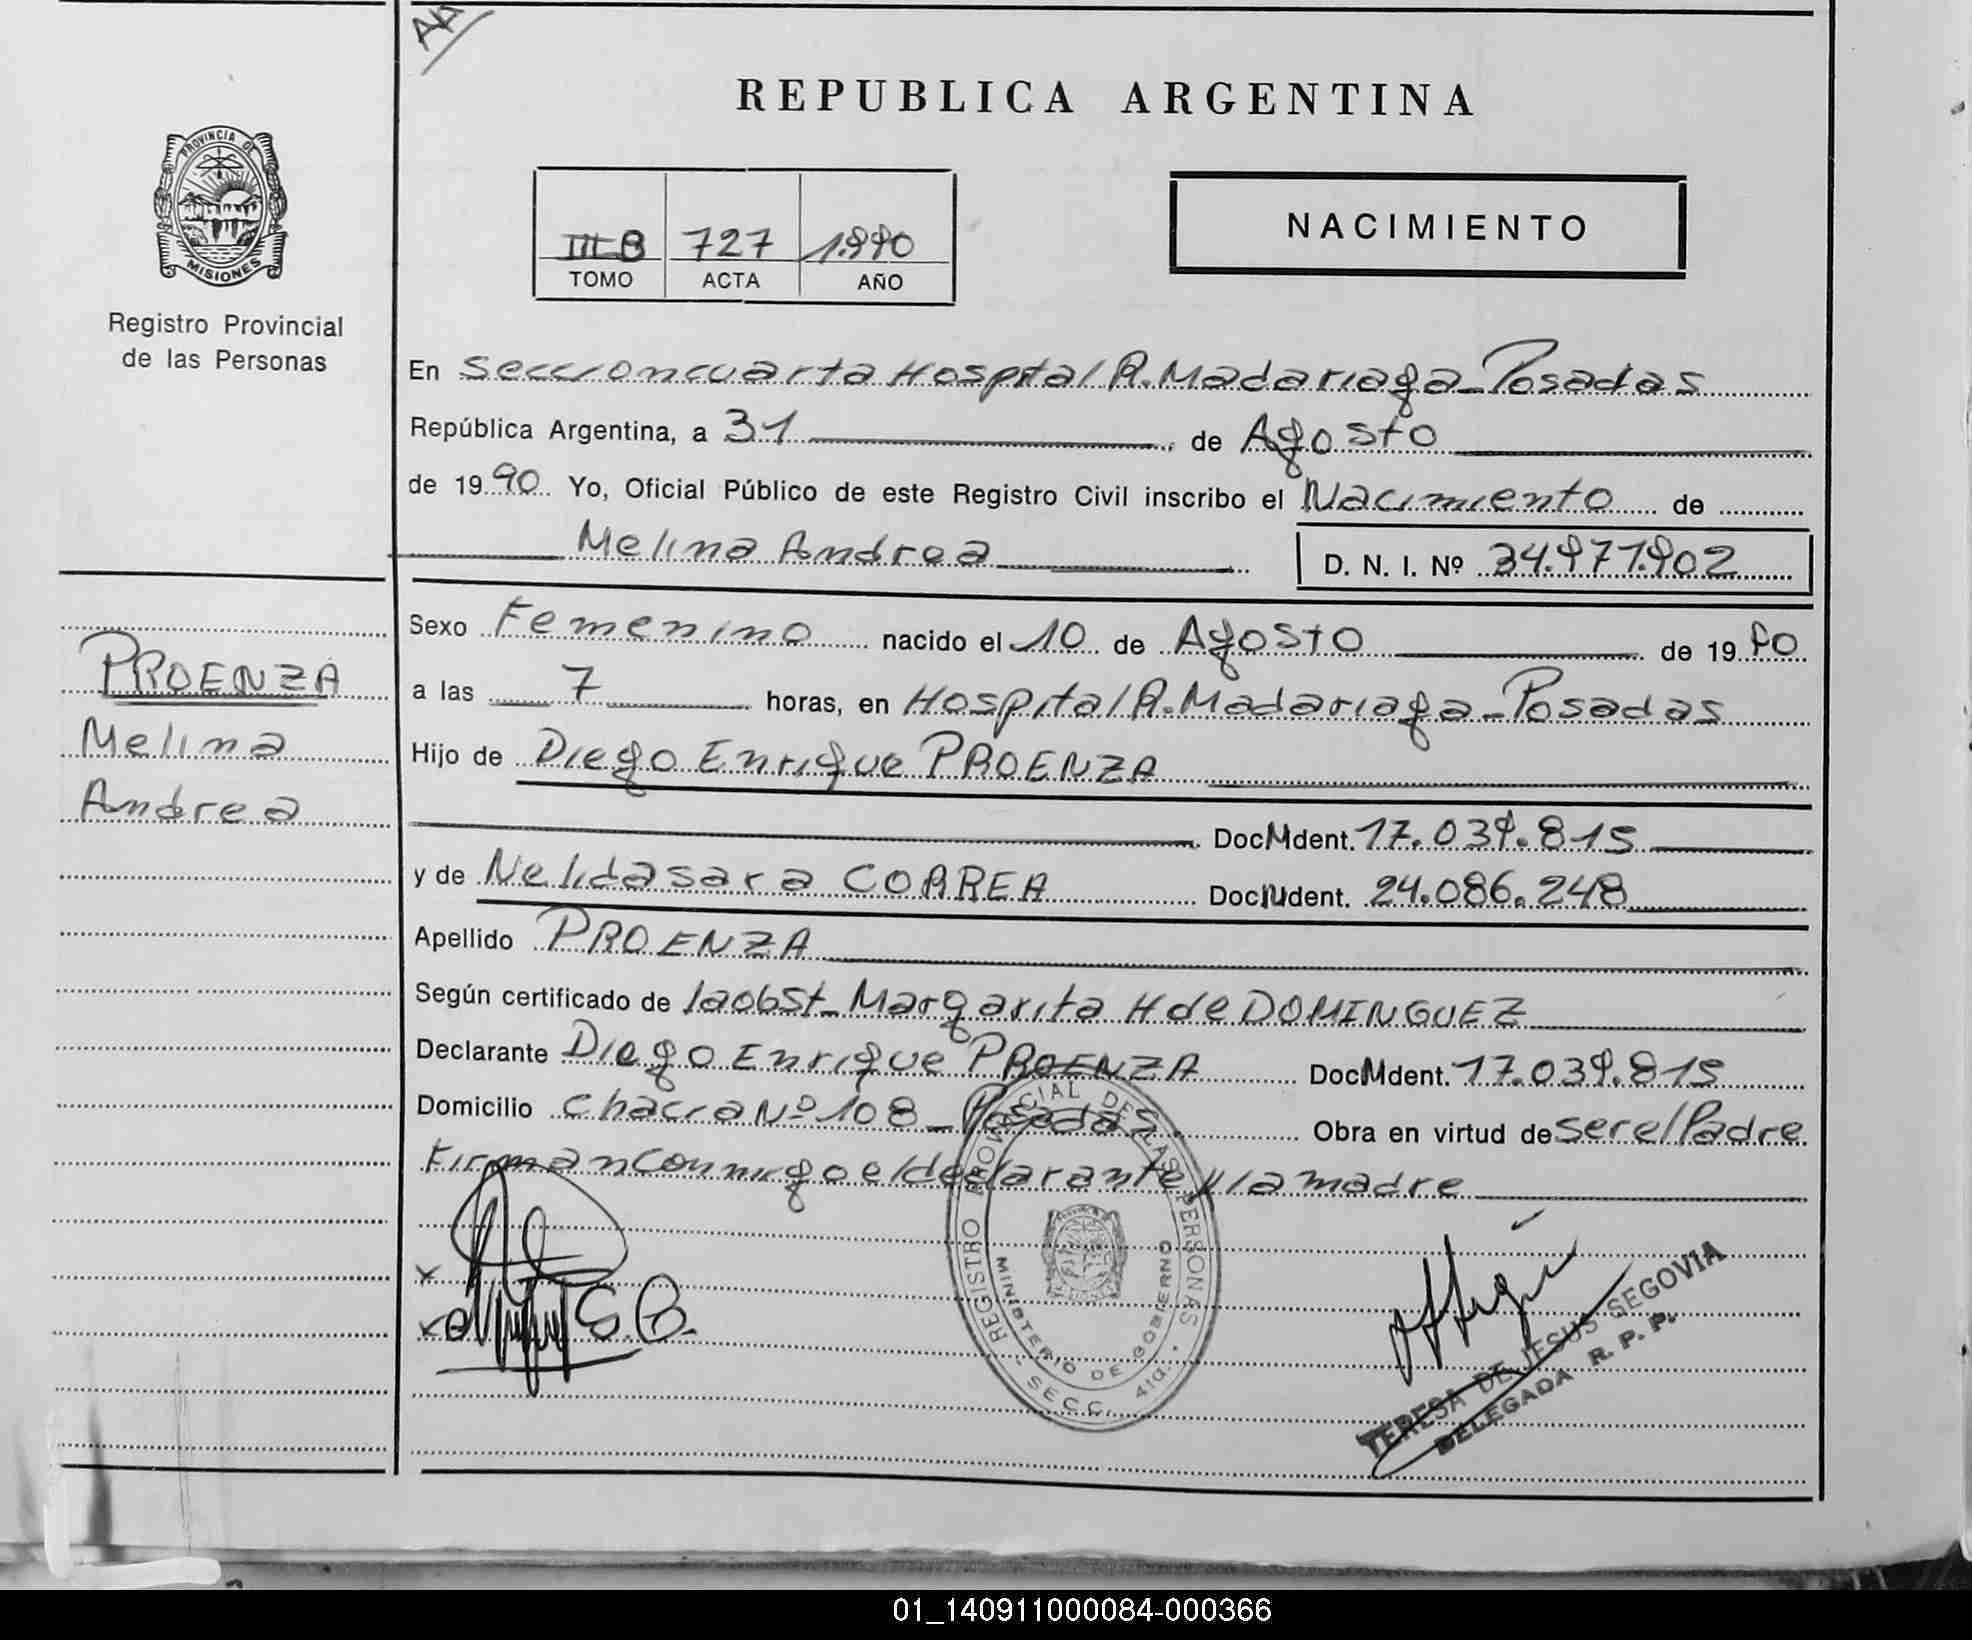 REPUBLICA ARGENTINA
PROVINCIA DE
MISIONES
Registro Provincial
de las Personas
III B 727 1.990
TOMO ACTA AÑO
NACIMIENTO
En Seccion cuarta Hospital R. Madariaga - Posadas
República Argentina, a 31 de Agosto
de 1990 Yo, Oficial Público de este Registro Civil inscribo el Nacimiento de
Melina Andrea D. N. I. Nº 34.977.902
PROENZA
Melina
Andrea
Sexo Femenino nacido el 10 de Agosto de 1990
a las 7 horas, en Hospital R. Madariaga - Posadas
Hijo de Diego Enrique PROENZA
Doc M dent. 17.039.815
y de Nelida sara CORREA Doc IU dent. 24.086.248
Apellido PROENZA
Según certificado de la obst - Margarita H de DOMINGUEZ
Declarante Diego Enrique PROENZA Doc M dent. 17.039.815
Domicilio chacra Nº 108 - Posadas. Obra en virtud de ser el Padre
Firman conmigo el declarante y la madre
REGISTRO PROVINCIAL DE LAS PERSONAS
MINISTERIO DE GOBIERNO
SECC. 4ta.
TERESA DE JESUS SEGOVIA
DELEGADA R. P. P.
01_140911000084-000366